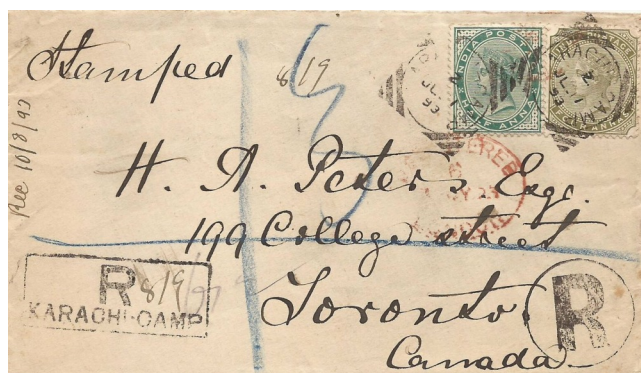 Stamped
8/9
INDIA POSTAGE
HALF ANNA
KARACHI-CAMP
2
JL 1
93
Rec 10/8/93
H. A. Peters Esqr.
199 College street
Toronto
Canada
R
8/9
KARACHI-CAMP
R